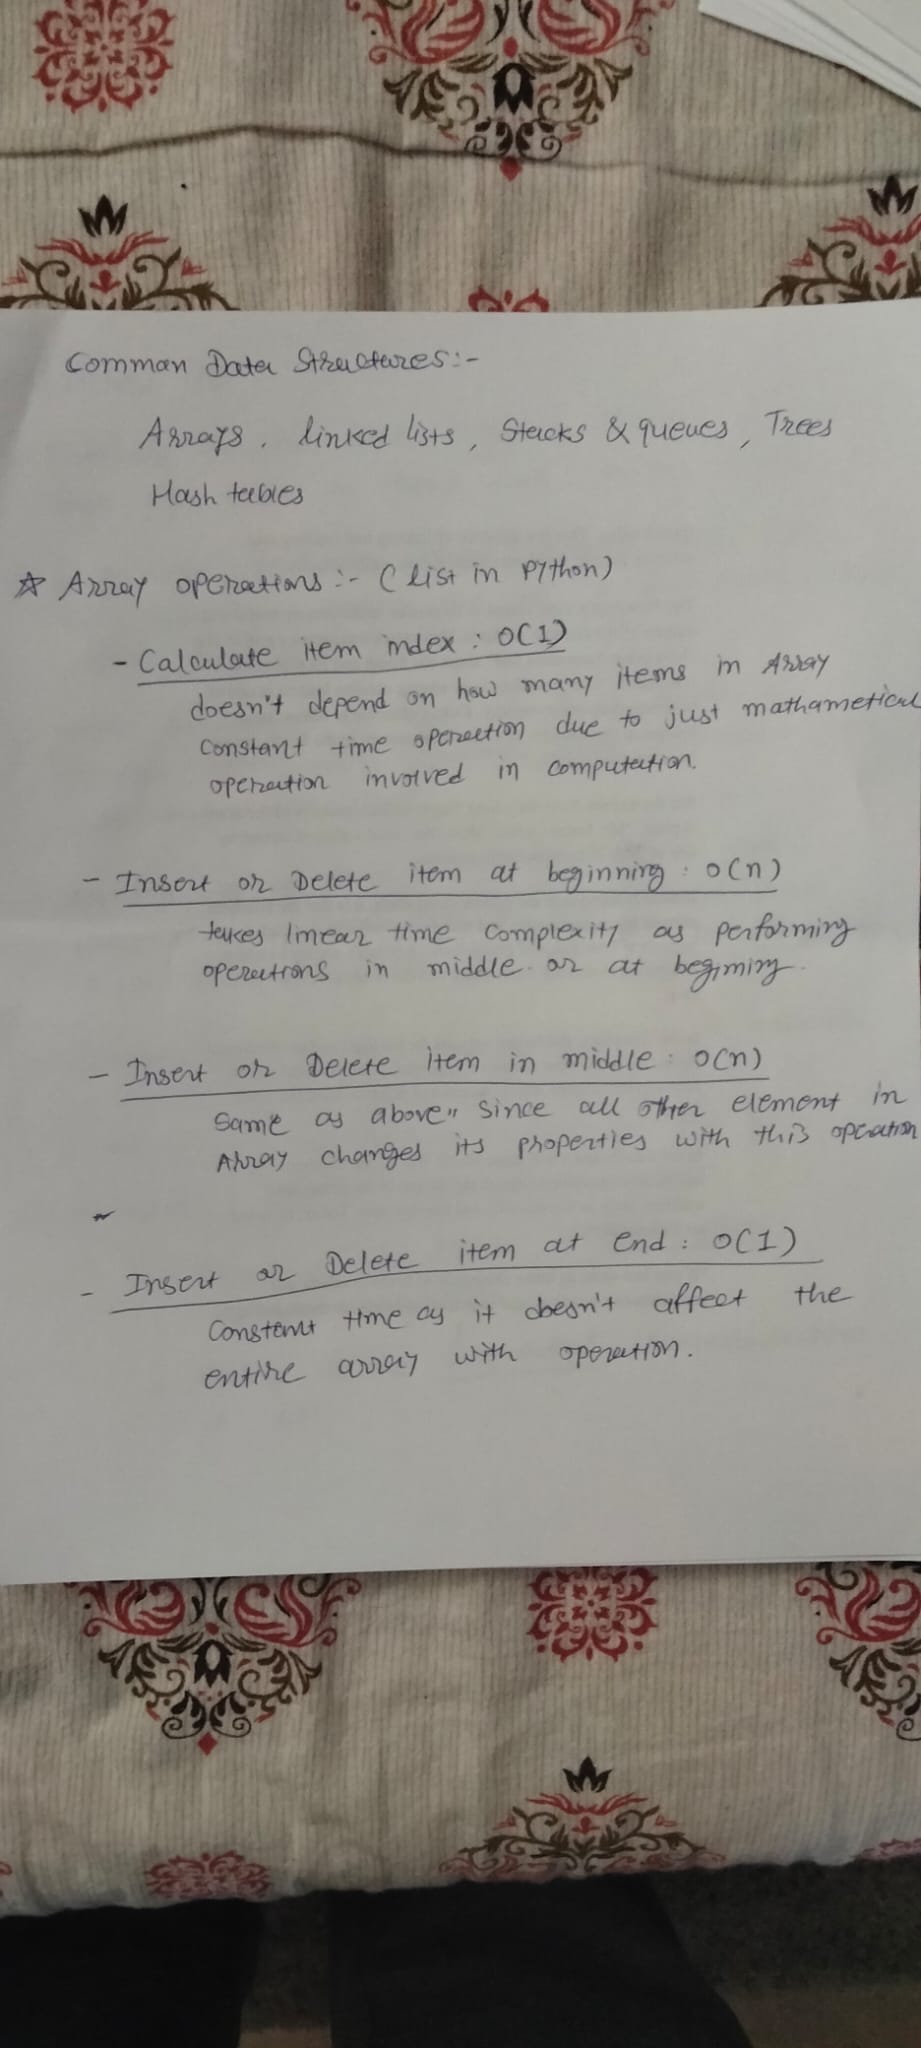 Common Data Structures:-
Arrays, linked lists, Stacks & queues, Trees
Hash tables
☆ Array operations :- (list in Python)
- Calculate item index : O(1)
doesn't depend on how many items in Array
constant time operation due to just mathametical
operation involved in computation.
- Insert or Delete item at beginning : O(n)
takes linear time complexity as performing
operations in middle or at beginning.
- Insert or Delete item in middle : O(n)
Same as above,, since all other element in
Array changes its properties with this operation
- Insert or Delete item at end : O(1)
Constant time as it doesn't affect the
entire array with operation.